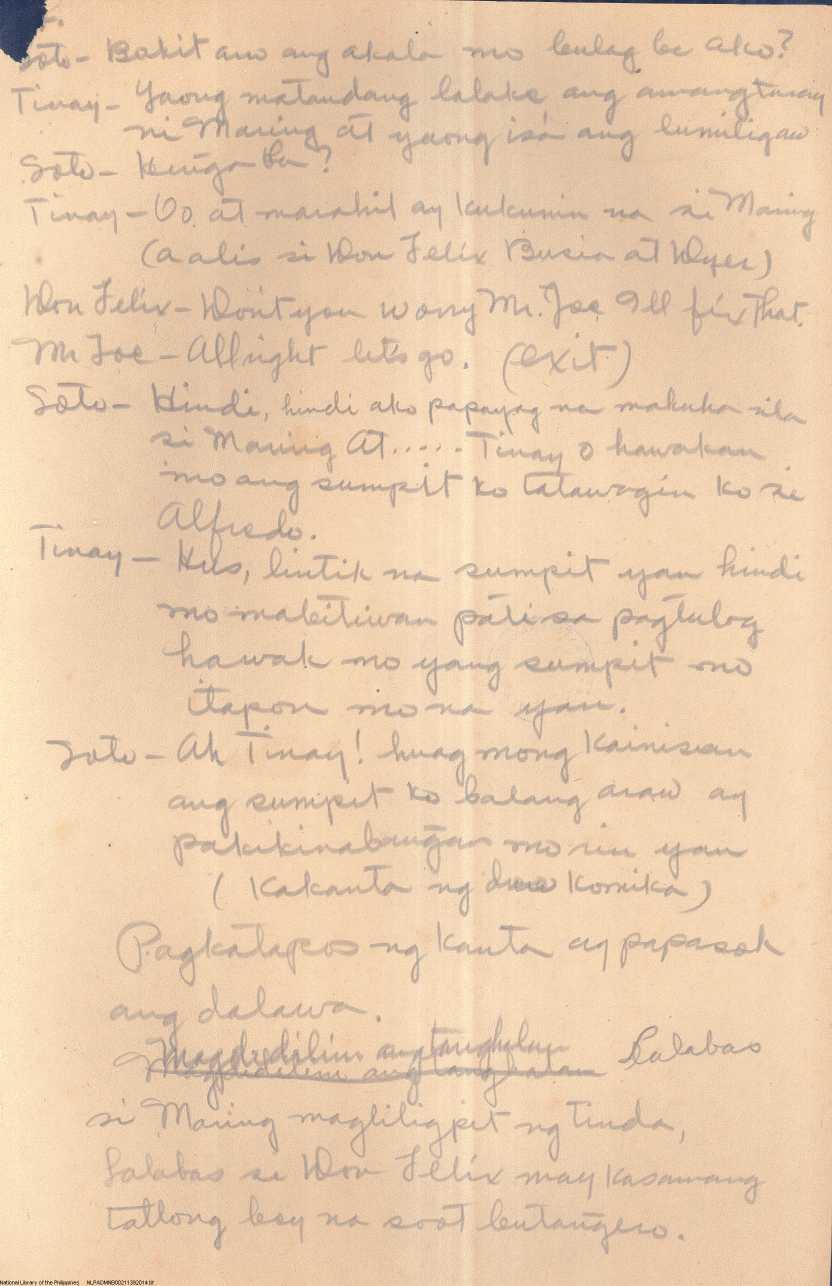 Soto - Bakit ano ang akala mo bulag ba ako?
Tinay - Yaong matandang lalake ang amangtunay
ni Maring at yaong isa ang lumiligaw
Soto - Kunga ba?
Tinay - Oo at marahil ay kukunin na si Maring
(aalis si Don Felix Busia at Dyes)
Don Felix - Don't you worry Mr. Joe I'll fix that.
Mr Joe - Allright let's go. (exit)
Soto - Hindi, hindi ako papayag na makuha nila
si Maring At..... Tinay o hawakan
mo ang sumpit ko tatawagin ko si
Alfredo.
Tinay - Hus, lintik na sumpit yan hindi
mo mabitiwan pati sa pagtulog
hawak mo yang sumpit mo
itapon mo na yan.
Soto - Ah Tinay! huag mong kainisan
ang sumpit ko balang araw ay
pakikinabangan mo rin yan
( Kakanta ng duo Komika )
Pagkatapos ng kanta ay papasok
ang dalawa.
Magdidilim ang tanghalan
Magdidilim ang tanghalan Lalabas
si Maring magliligpit ng tinda,
Lalabas si Don Felix may kasamang
tatlong boy na soot butangero.
National Library of the Philippines